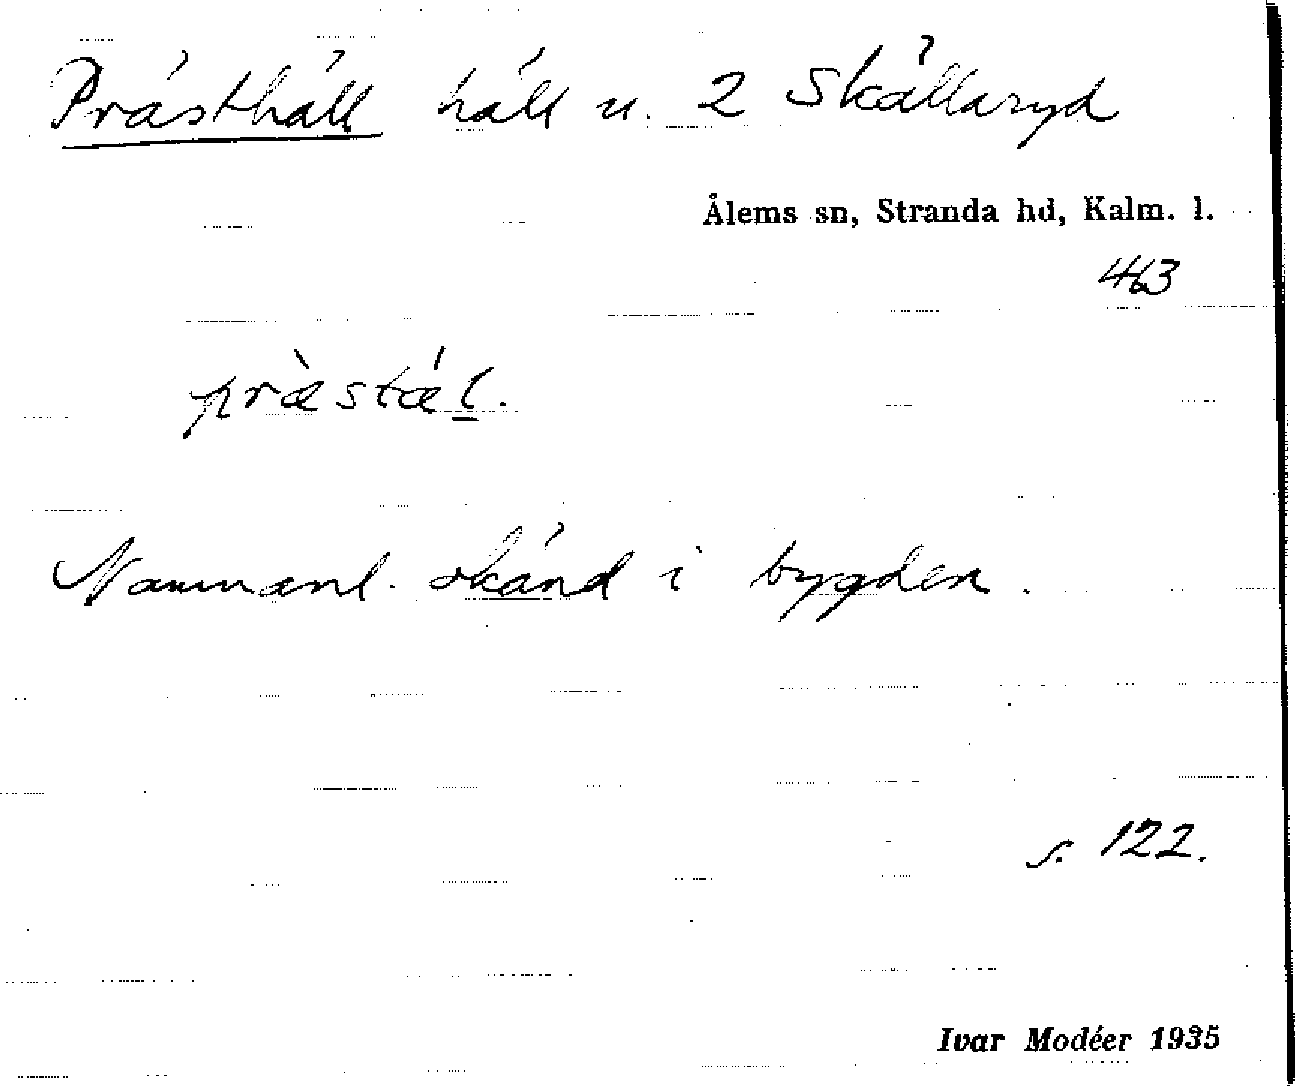 Prästhäll häll u. 2 Skällaryd
Ålems sn, Stranda hd, Kalm. l.
463
prὰstǽl.
Namnanl. skänd i bygden.
s. 122.
Ivar Modéer 1935